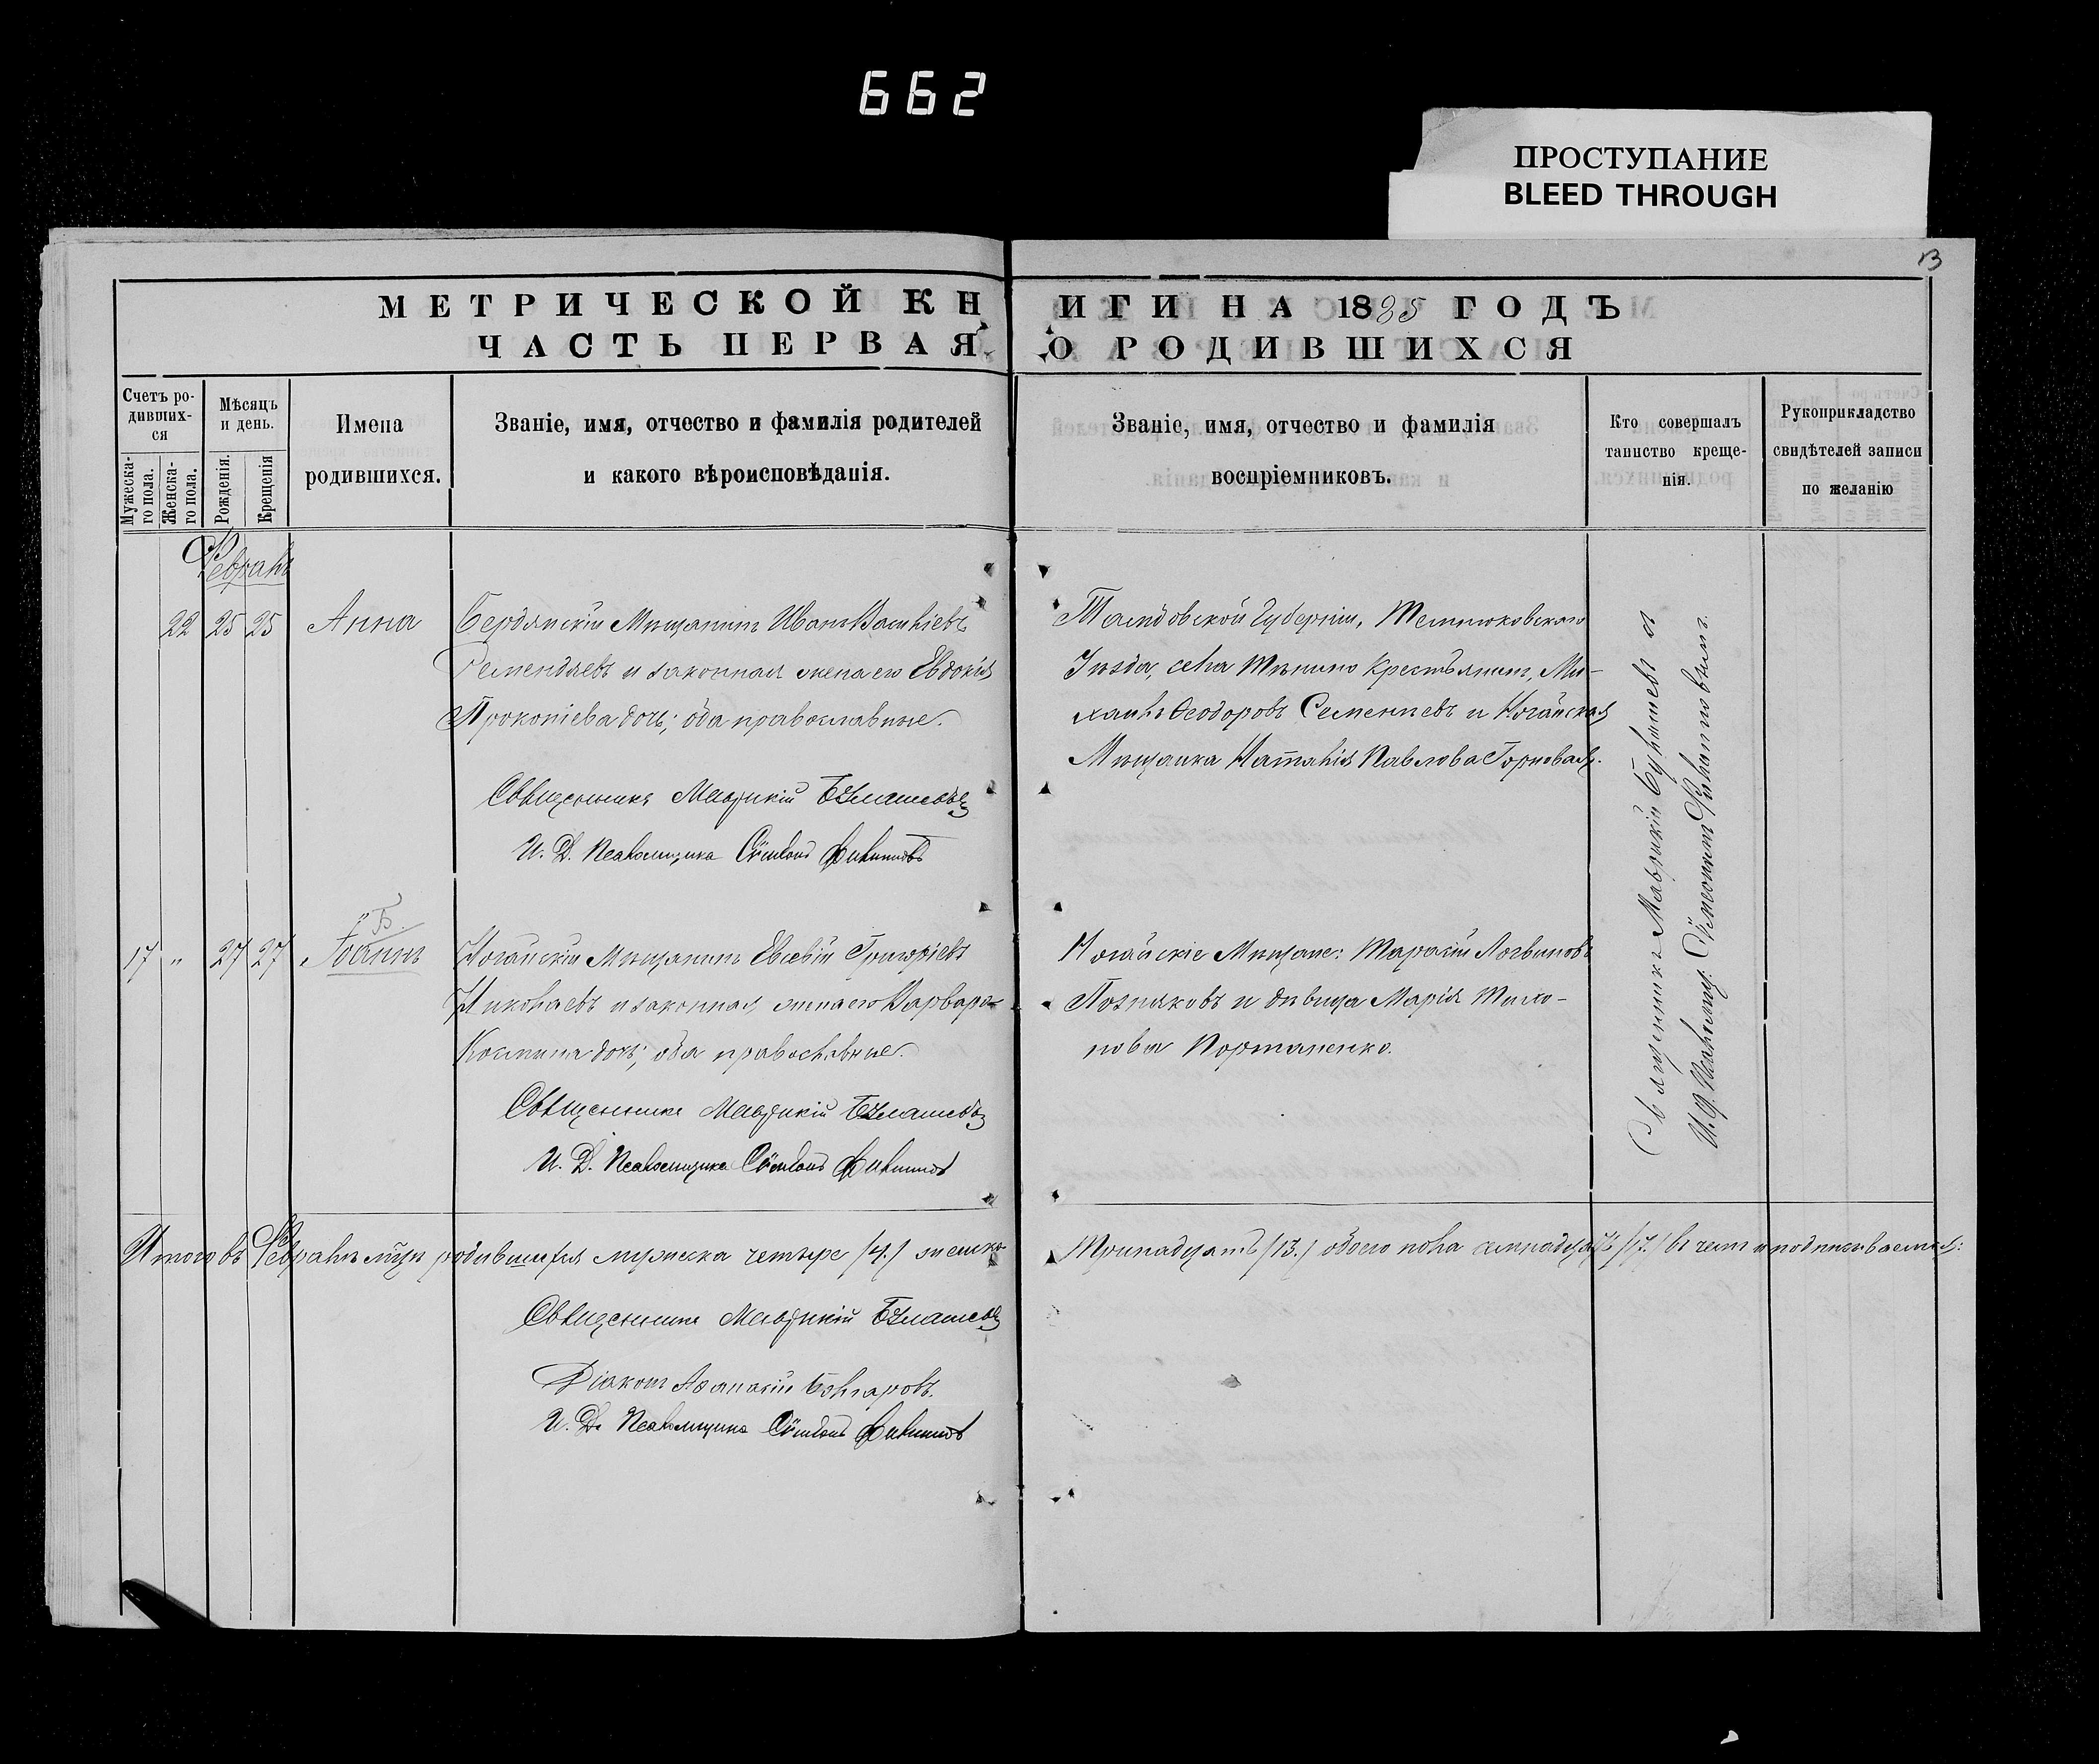 662
ПРОСТУПАНИЕ
BLEED THROUGH
13
МЕТРИЧЕСКОЙ КНИГИ НА 1885 ГОДЪ
ЧАСТЬ ПЕРВАЯ, О РОДИВШИХСЯ
Счетъ ро-
дивших-
ся
Мужеска-
го пола.
Женска-
го пола.
Мѣсяцъ
и день.
Рожденія.
Крещенія
Имена
родившихся.
Званіе, имя, отчество и фамилія родителей
и какого вѣроисповѣданія.
Званіе, имя, отчество и фамилія
воспріемниковъ.
Кто совершалъ
таинство креще-
нія.
Рукоприкладство
свидѣтелей записи
по желанію
Февраль
22 25 25 Анна
Бердянскій Мѣщанинъ Иванъ Васильевъ
Семендяевъ и законная жена его Евдокія
Прокопіева дочь; оба православные.
Священникъ Маврикій
И. Д. Псаломщика Сѵмеонъ Филиповъ
Тамбовской Губерніи, Темниковскаго
Уѣзда, села крестьянинъ, Ми-
хаилъ Ѳеодоровъ Семенцевъ и Ногайская
Мѣщанка Наталія Павлова Горновая.
17 " 27 27 Іоаннъ
Б.
Ногайскій Мѣщанинъ Евсевій Григоріевъ
Николаевъ и законная жена его Варвара
Космина дочь; оба православные.
Священникъ Маврикій
И. Д. Псаломщика Сѵмеонъ Филиповъ
Ногайскіе Мѣщане: Тарасій Логвиновъ
Позняковъ и дѣвица Марія Тихо-
нова Портаненко.
Священникъ Маврикій съ
И. д. Псаломщ: Сѵмеономъ Филиповымъ.
Итого въ Февралѣ мѣсяцѣ родившихся мужеска четыре /4./ женска тринадцать /13./ обоего пола семнадцать /17./ въ чемъ и подписываемся:
Священникъ Маврикій
Діаконъ Аѳанасій Болгаровъ.
И. Д. Псаломщика Сѵмеонъ Филиповъ